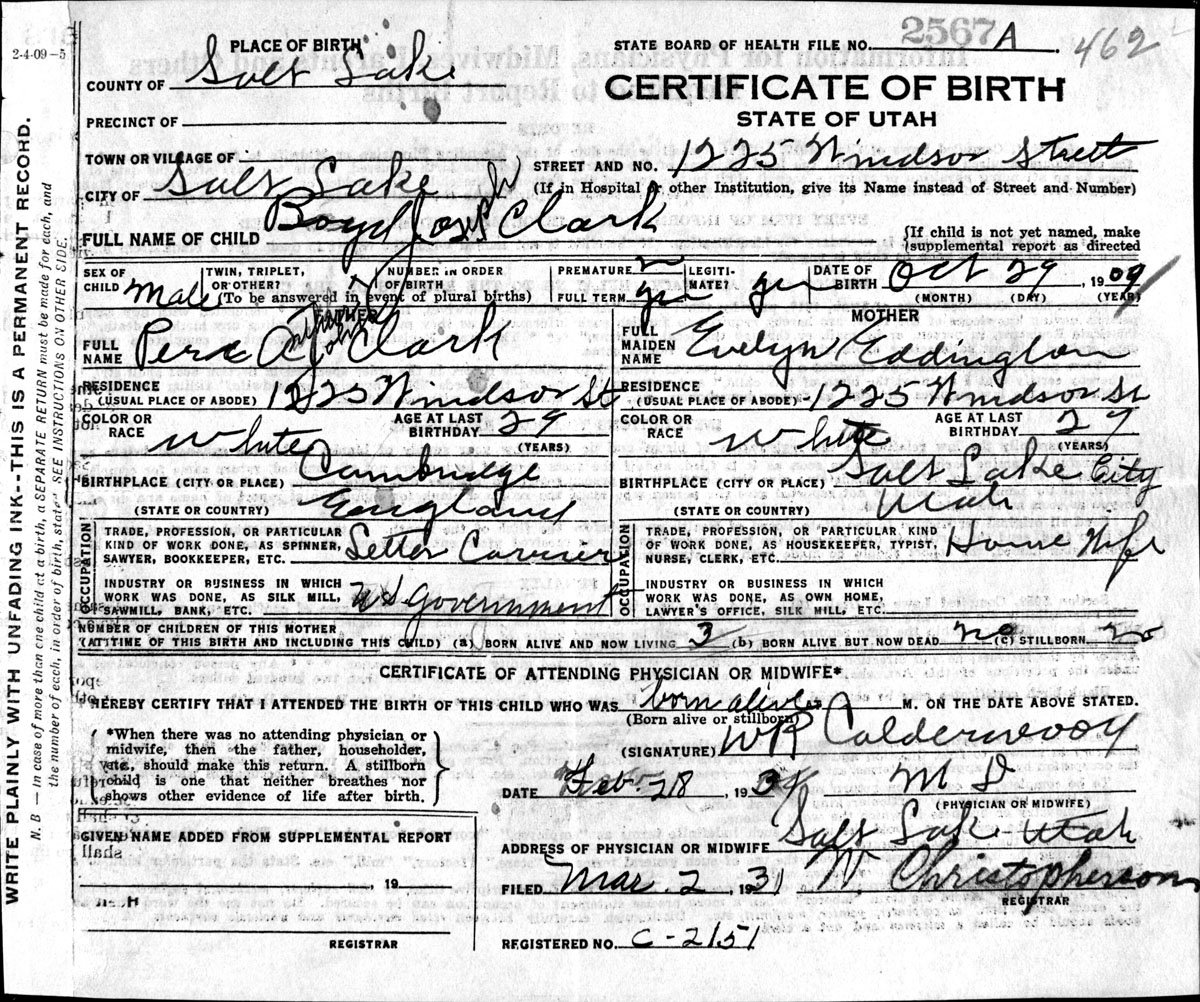 2-4-09-5
PLACE OF BIRTH
STATE BOARD OF HEALTH FILE NO. 2567 A
462
COUNTY OF Salt Lake
CERTIFICATE OF BIRTH
STATE OF UTAH
PRECINCT OF
TOWN OR VILLAGE OF
STREET AND NO. 1225 Windsor Street
CITY OF Salt Lake
(If in Hospital or other Institution, give its Name instead of Street and Number)
FULL NAME OF CHILD Boyd Joseph Clark
{If child is not yet named, make
supplemental report as directed
SEX OF CHILD Male
TWIN, TRIPLET, OR OTHER?
NUMBER IN ORDER OF BIRTH
(To be answered in event of plural births)
PREMATURE
FULL TERM yes
LEGITIMATE? yes
DATE OF BIRTH Oct 29, 1909
(MONTH) (DAY) (YEAR)
FATHER
FULL NAME Clark
RESIDENCE (USUAL PLACE OF ABODE) 1225 Windsor St
COLOR OR RACE White
AGE AT LAST BIRTHDAY 29 (YEARS)
BIRTHPLACE (CITY OR PLACE) Cambridge
(STATE OR COUNTRY) England
OCCUPATION
TRADE, PROFESSION, OR PARTICULAR
KIND OF WORK DONE, AS SPINNER,
SAWYER, BOOKKEEPER, ETC. Letter Carrier
INDUSTRY OR BUSINESS IN WHICH
WORK WAS DONE, AS SILK MILL,
SAWMILL, BANK, ETC. U S Government
MOTHER
FULL MAIDEN NAME Evelyn Eddington
RESIDENCE (USUAL PLACE OF ABODE) 1225 Windsor St
COLOR OR RACE White
AGE AT LAST BIRTHDAY 29 (YEARS)
BIRTHPLACE (CITY OR PLACE) Salt Lake City
(STATE OR COUNTRY) Utah
OCCUPATION
TRADE, PROFESSION, OR PARTICULAR KIND
OF WORK DONE, AS HOUSEKEEPER, TYPIST,
NURSE, CLERK, ETC. House Wife
INDUSTRY OR BUSINESS IN WHICH
WORK WAS DONE, AS OWN HOME,
LAWYER'S OFFICE, SILK MILL, ETC.
NUMBER OF CHILDREN OF THIS MOTHER
(AT TIME OF THIS BIRTH AND INCLUDING THIS CHILD) (a) BORN ALIVE AND NOW LIVING 3 (b) BORN ALIVE BUT NOW DEAD no (c) STILLBORN no
CERTIFICATE OF ATTENDING PHYSICIAN OR MIDWIFE*
I HEREBY CERTIFY THAT I ATTENDED THE BIRTH OF THIS CHILD WHO WAS born alive M. ON THE DATE ABOVE STATED.
(Born alive or stillborn)
*When there was no attending physician or
midwife, then the father, householder,
etc., should make this return. A stillborn
child is one that neither breathes nor
shows other evidence of life after birth.
(SIGNATURE) W R Calderwood
DATE Feb. 28, 193 M D
(PHYSICIAN OR MIDWIFE)
GIVEN NAME ADDED FROM SUPPLEMENTAL REPORT
ADDRESS OF PHYSICIAN OR MIDWIFE Salt Lake Utah
, 19
FILED Mar. 2 1931 N. Christopherson
REGISTRAR
REGISTRAR
REGISTERED NO. C-2151
WRITE PLAINLY WITH UNFADING INK--THIS IS A PERMANENT RECORD.
N. B — In case of more than one child at a birth, a SEPARATE RETURN must be made for each, and
the number of each, in order of birth, stated. SEE INSTRUCTIONS ON OTHER SIDE.